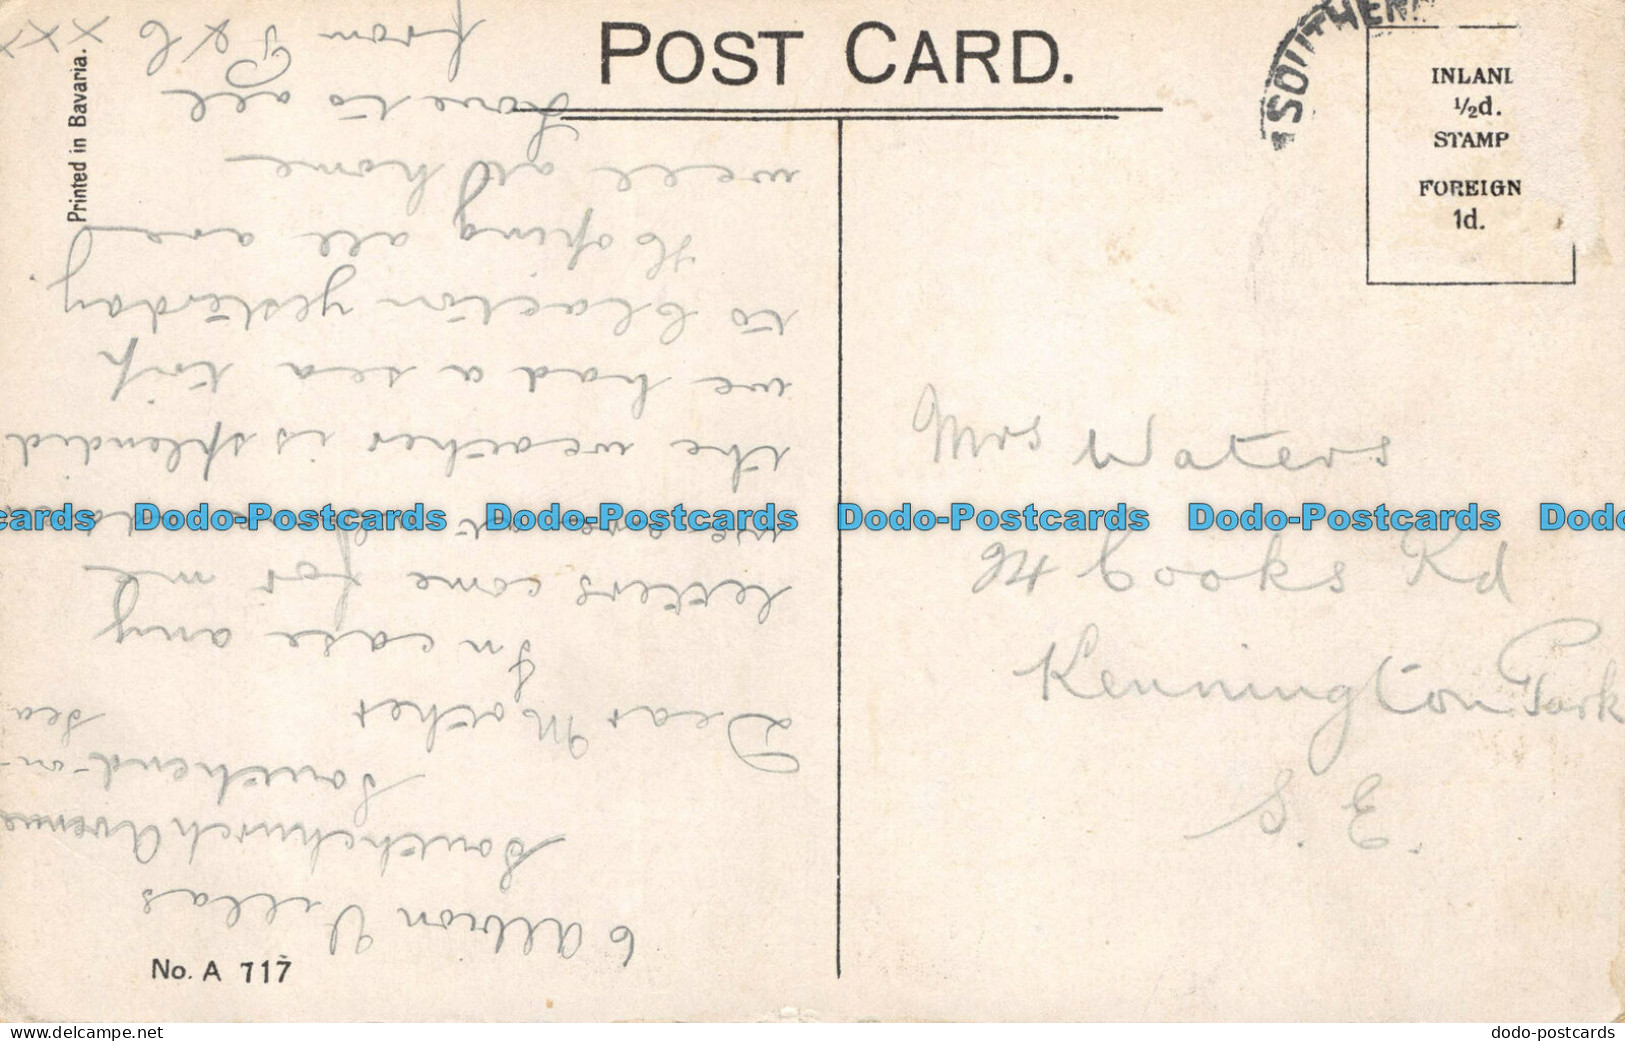 POST CARD.
SOUTHEN
INLAN
½d.
STAMP
FOREIGN
1d.
Printed in Bavaria.
No. A 117
Mrs Waters
24 Cooks Rd
Kennington Park
S. E.
6 Albion Villas
Southchurch Avenue
Southend-on-
Sea
Dear Mother
In case any
letters come for me
the weather is splendid
we had a sea trip
to Clacton yesterday.
Hoping all are
well at home
Love to all
from P & C
x x x
Dodo-Postcards Dodo-Postcards Dodo-Postcards Dodo-Postcards
www.delcampe.net
dodo-postcards